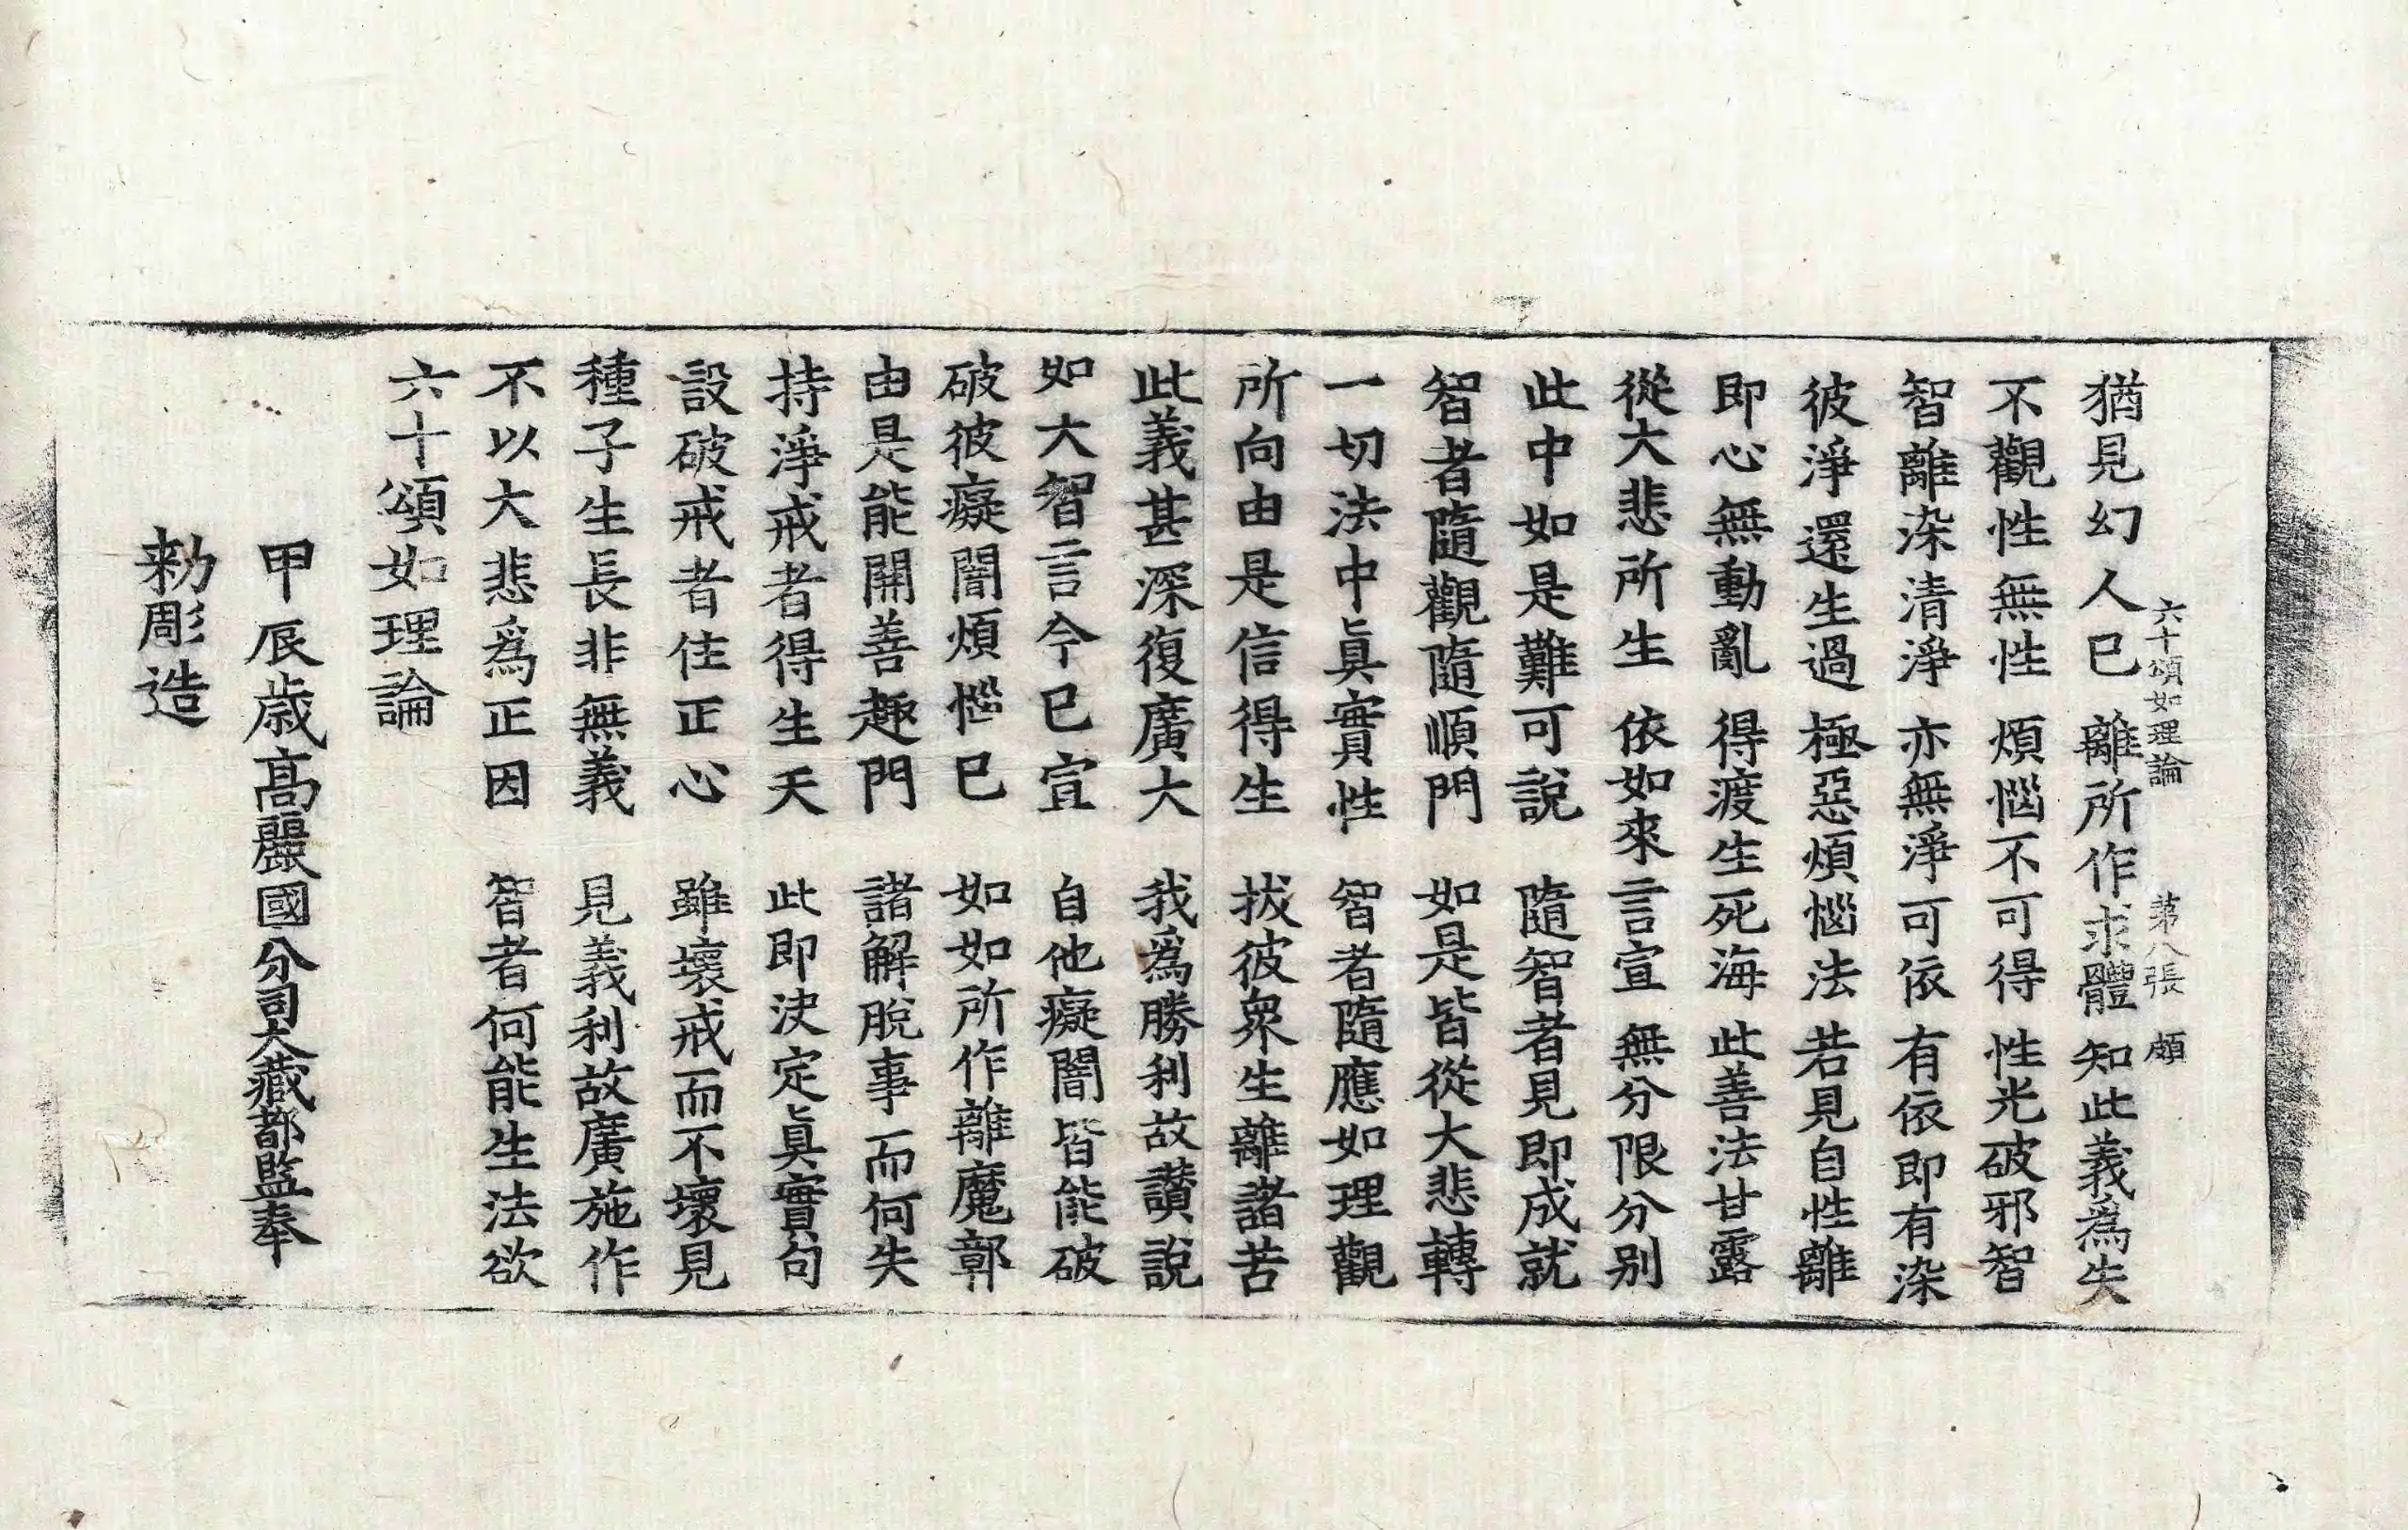 六十頌如理論 第八張 頗
猶見幻人已 離所作求體 知此義爲失
不觀性無性 煩惱不可得 性光破邪智
智離染清淨 亦無淨可依 有依即有染
彼淨還生過 極惡煩惱法 若見自性離
即心無動亂 得渡生死海 此善法甘露
從大悲所生 依如來言宣 無分限分別
此中如是難可說 隨智者見即成就
智者隨觀隨順門 如是皆從大悲轉
一切法中眞實性 智者隨應如理觀
所向由是信得生 拔彼衆生離諸苦
此義甚深復廣大 我爲勝利故讚說
如大智言今已宣 自他癡闇皆能破
破彼癡闇煩惱已 如如所作離魔鄣
由是能開善趣門 諸解脫事而何失
持淨戒者得生天 此即決定眞實句
設破戒者住正心 雖壞戒而不壞見
種子生長非無義 見義利故廣施作
不以大悲爲正因 智者何能生法欲
六十頌如理論
甲辰歲高麗國分司大藏都監奉
勑彫造